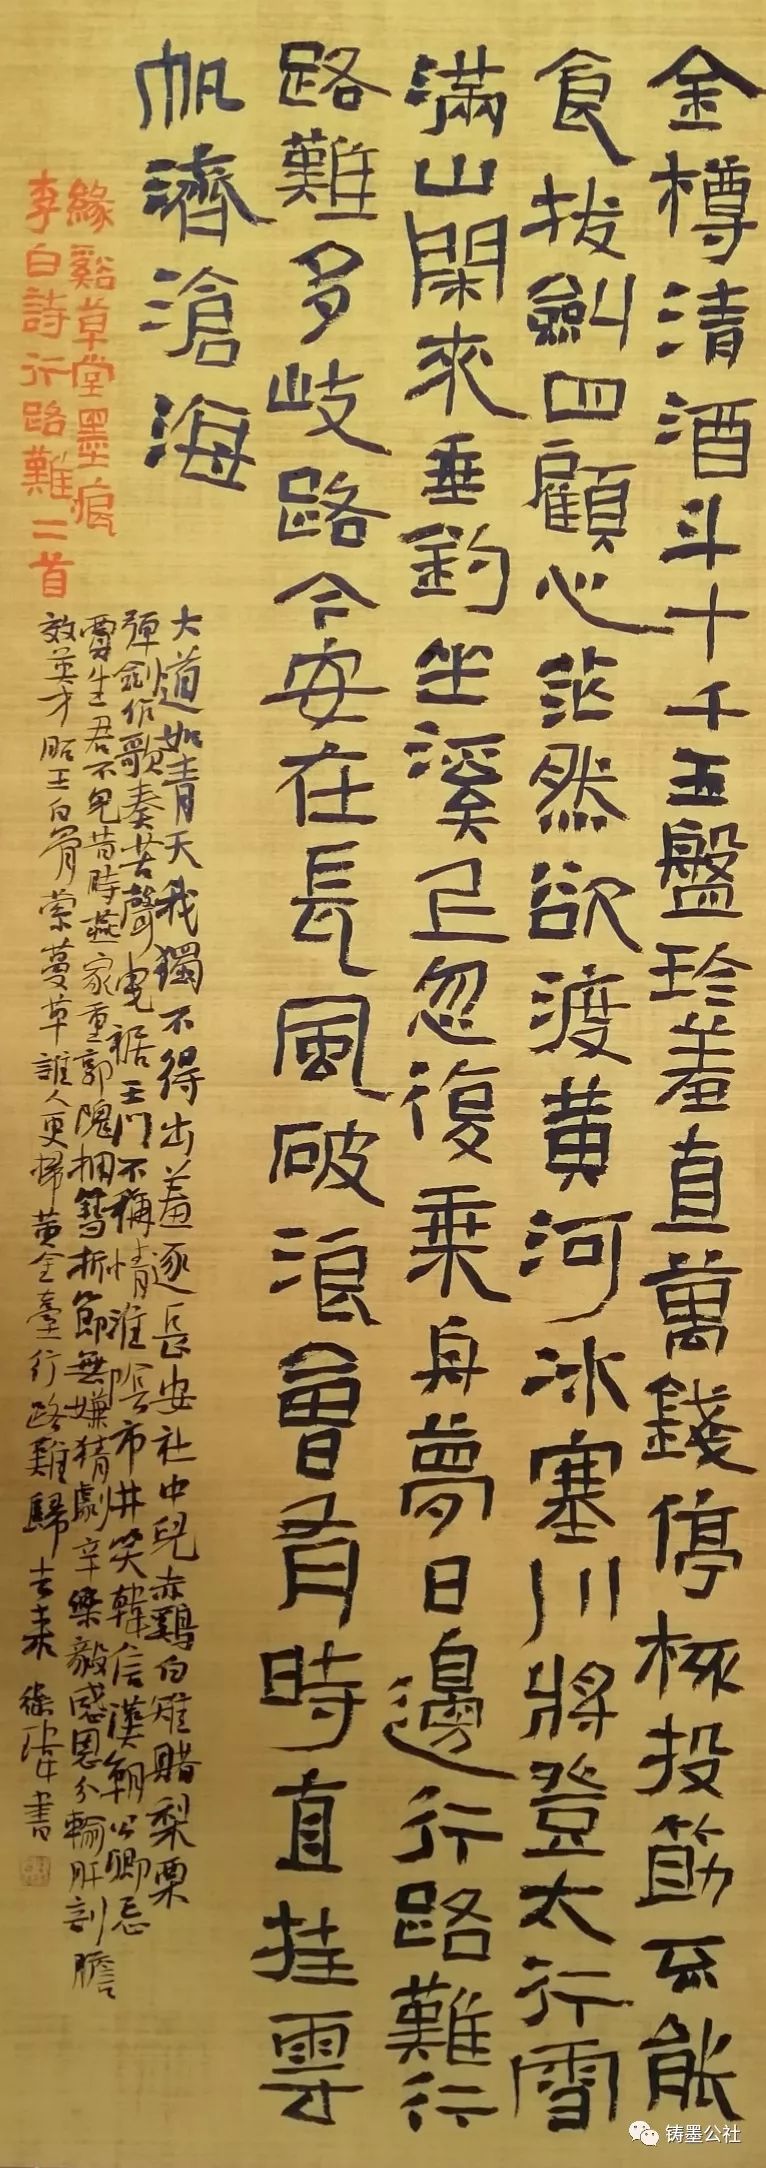 金樽清酒斗十千玉盤珍羞直萬錢停杯投筯不能
食拔劍四顧心茫然欲渡黄河冰塞川將登太行雪
滿山閑來垂釣坐溪上忽復乘舟夢日邊行路難行
路難多岐路今安在長風破浪會有時直挂雲
帆濟滄海
緣谿草堂墨痕
李白詩行路難二首
大道如青天我獨不得出羞逐長安社中兒赤鷄白雉賭梨栗
彈劍作歌奏苦聲曳裾王門不稱情淮陰市井笑韓信漢朝公卿忌
賈生君不見昔時燕家重郭隗擁篲折節無嫌猜劇辛樂毅感恩分輸肝剖膽
效英才昭王白骨縈蔓草誰人更掃黄金臺行路難歸去來 書
铸墨公社